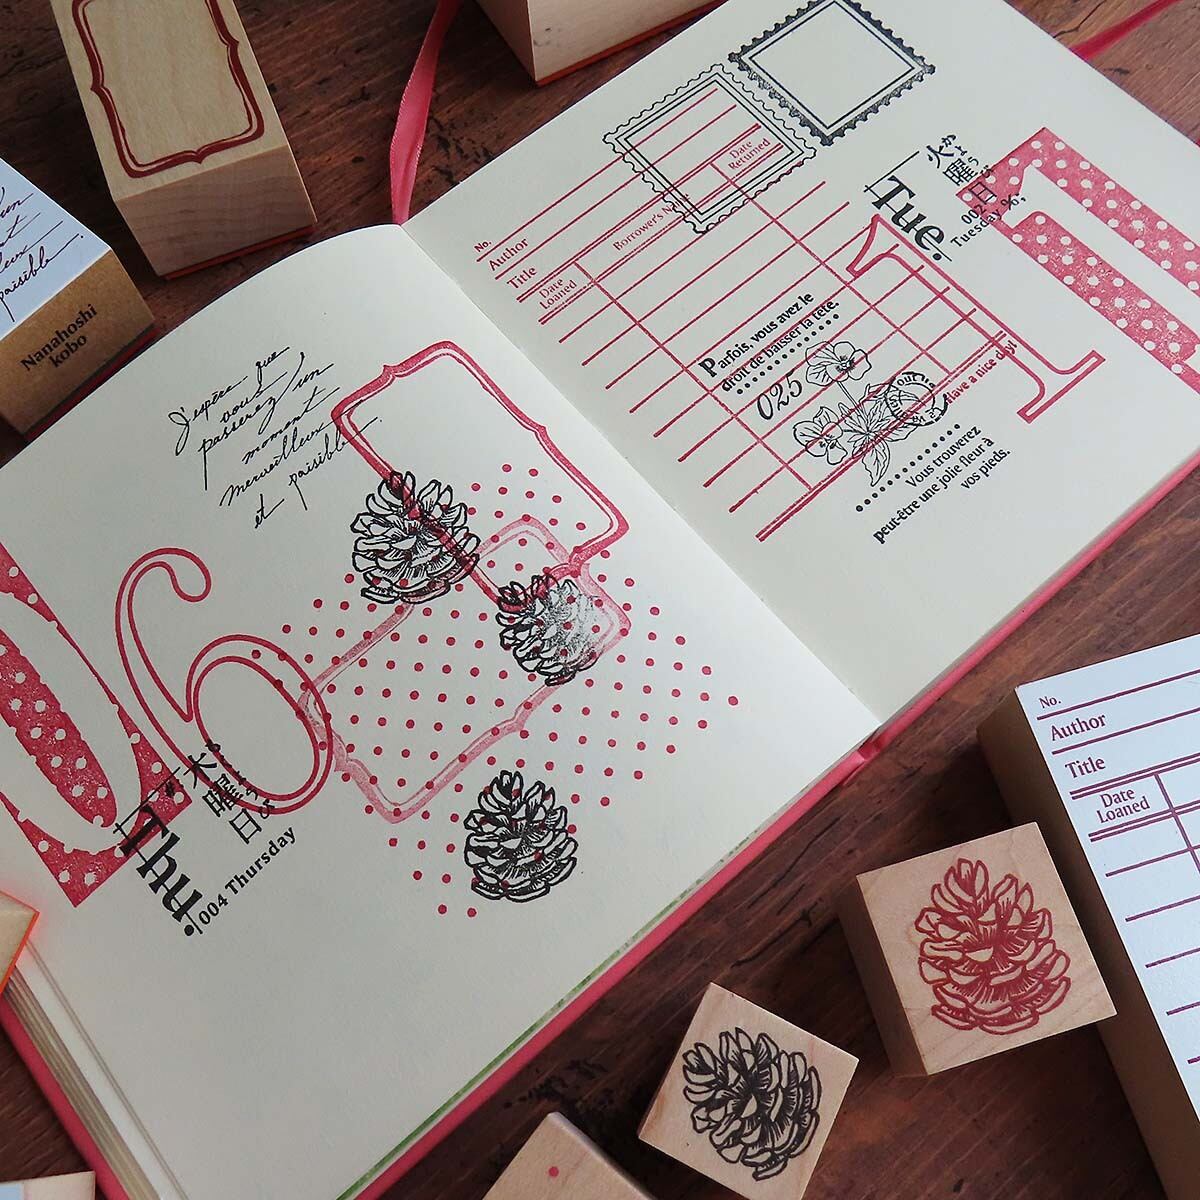 Nanahoshi
kobo
J'espère que
vous
passerez un
moment
merveilleux
et paisible.
06
木曜日
Thu.
004 Thursday
No.
Author
Title
Date
Loaned
Borrower's Name
Date
Returned
火曜日
かようび
Tue.
002
Tuesday
Parfois, vous avez le
droit de baisser la tête.
025
Have a nice day!
Vous trouverez
peut-être une jolie fleur à
vos pieds.
1
No.
Author
Title
Date
Loaned
un
paisible.